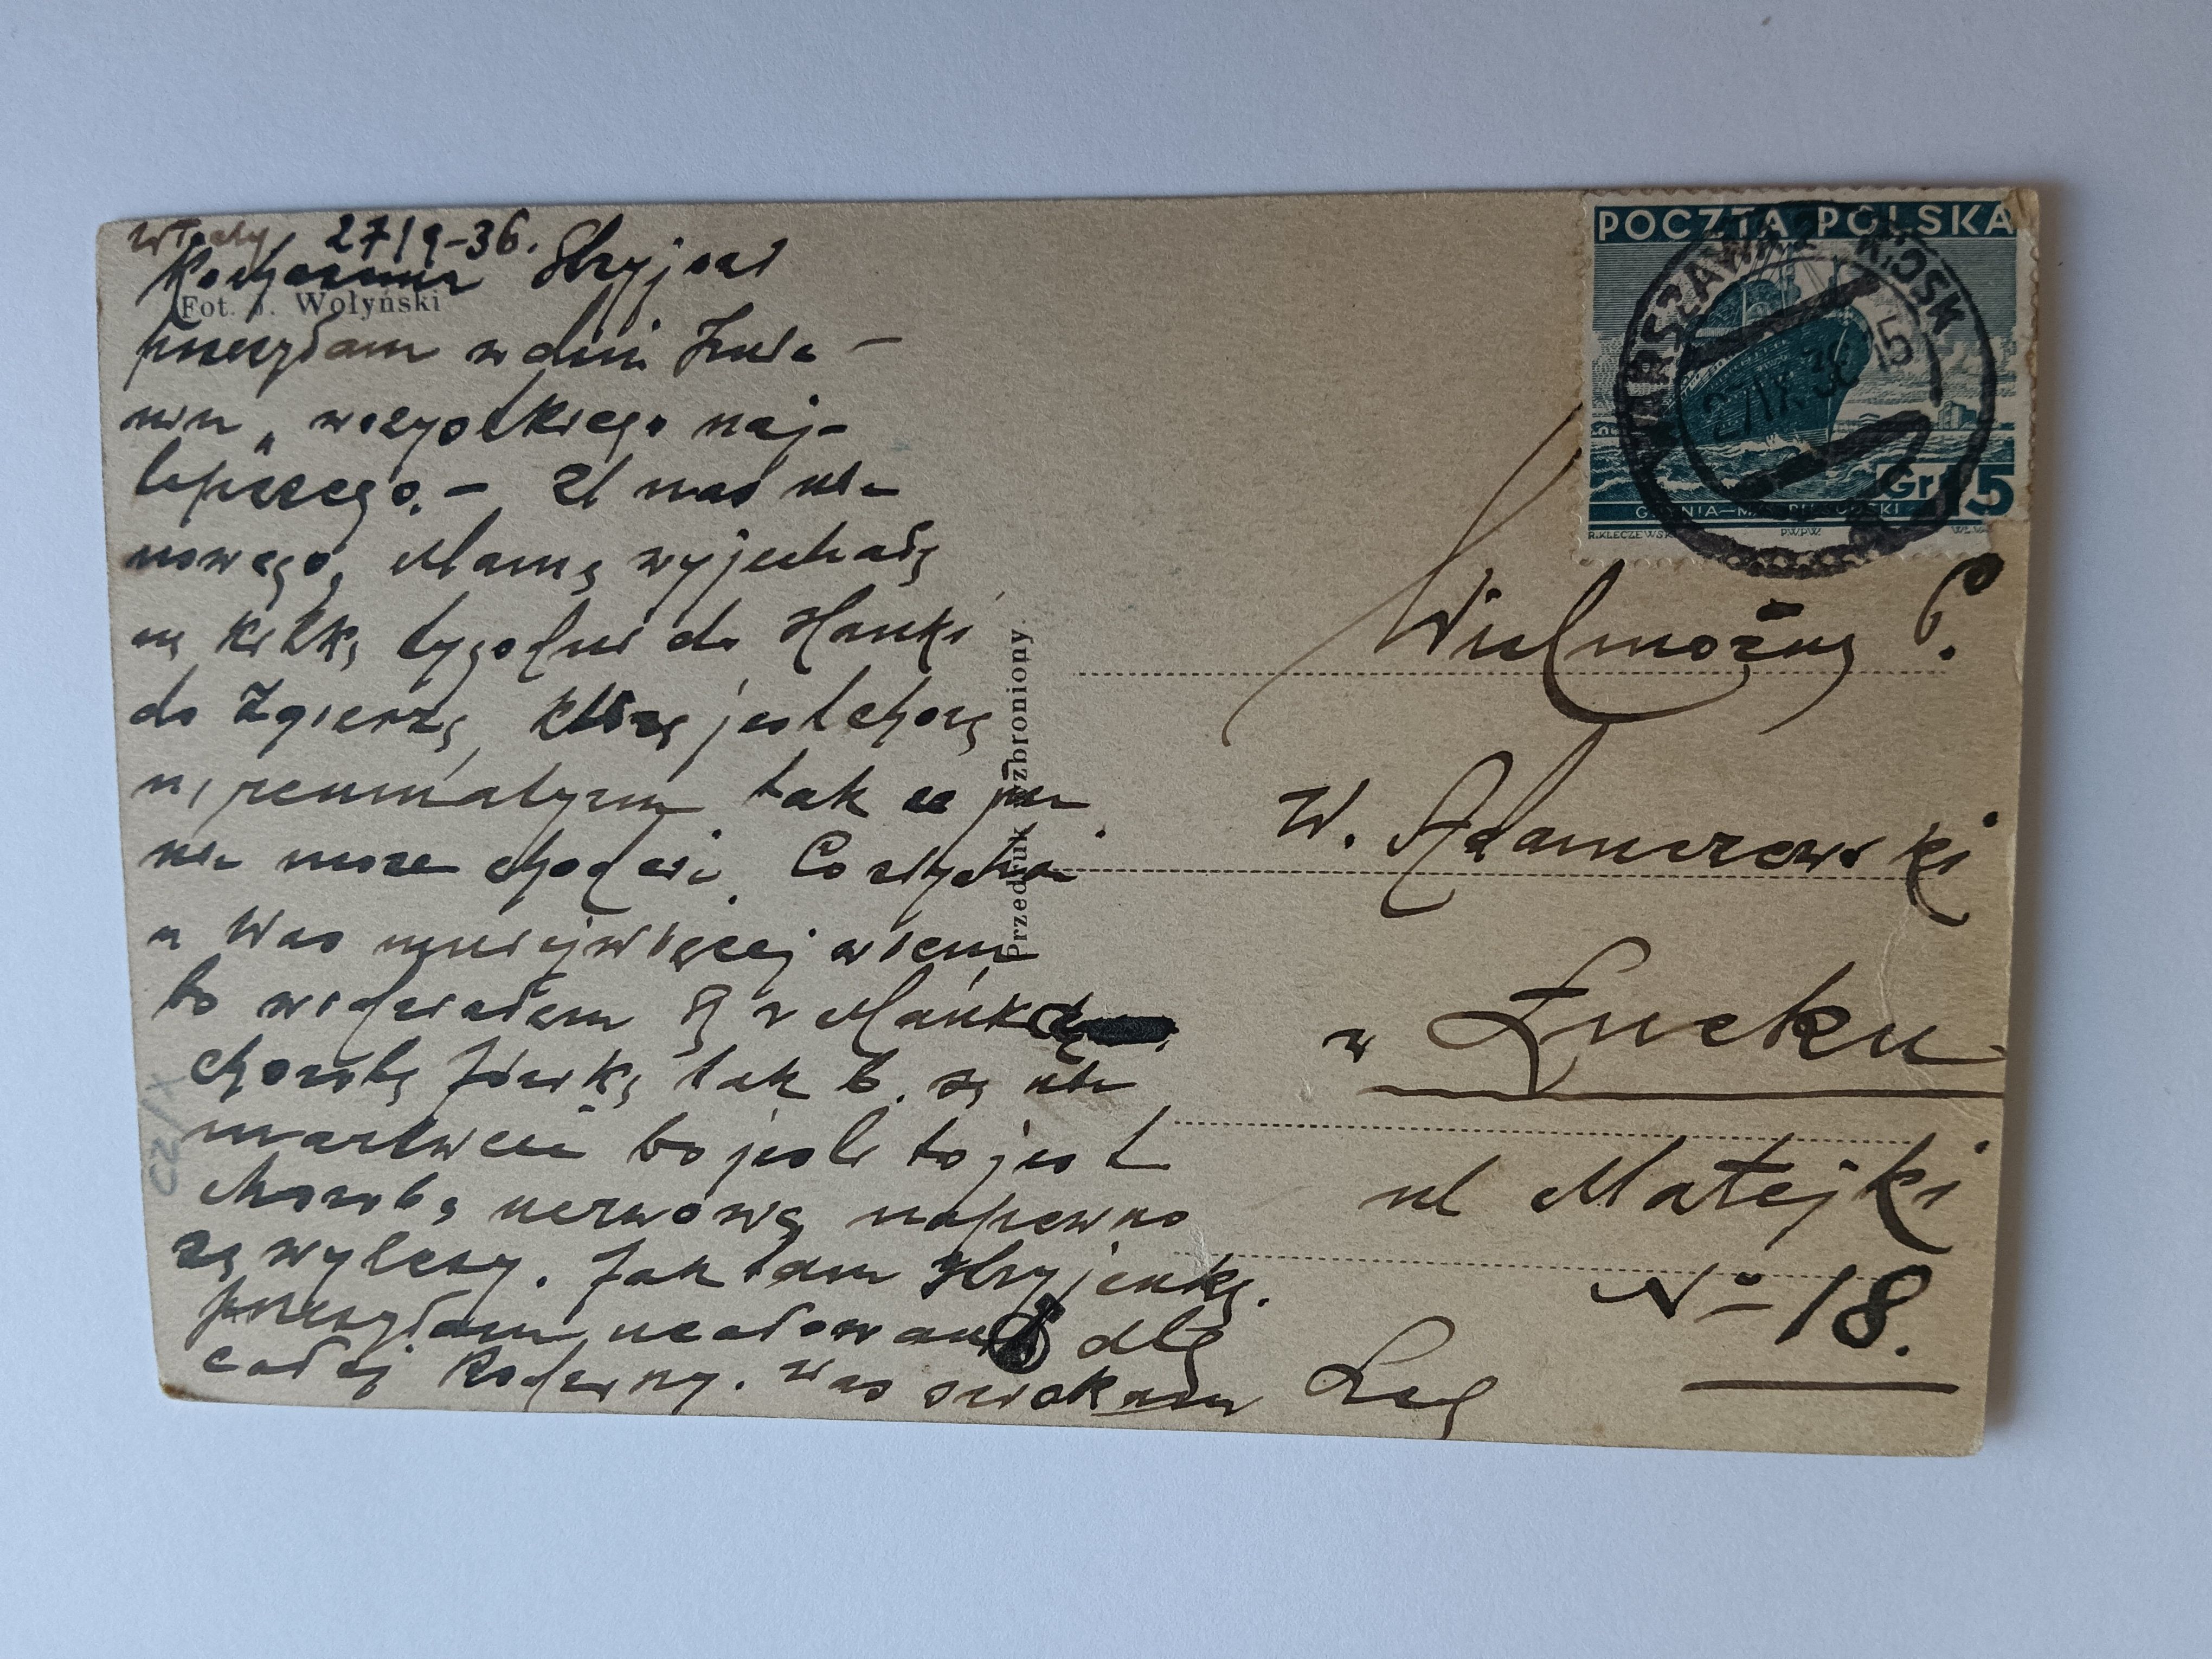 Włochy 27/9-36.
Kochanemu Stryjowi
Fot. J. Wołyński
przesyłam w dniu Imie-
nin, wszystkiego naj-
lepszego. - U nas nic
nowego, Mama wyjechała
na kilka tygodni do Hanki
do Zgierza, która jest chora
na reumatyzm tak że
nie może chodzić. Co słychać
u Was mniejwięcej wiem
bo widziałem się z Mańką
chorobą Józka tak b. się nie
martwcie bo jeśli to jest
choroba nerwowa napewno
się wyleczy. Jak tam Stryjenka.
przesyłam ucałowania dla
całej Rodziny. Was
Przedruk wzbroniony.
POCZTA POLSKA
WARSZAWA KIOSK
27 IX 36 15
Gr 15
GDYNIA—M/S PIŁSUDSKI
R. KLECZEWSKI P.W.P.W.
Wielmożny P.
W. Adamczewski
w Łucku
ul Matejki
No 18.